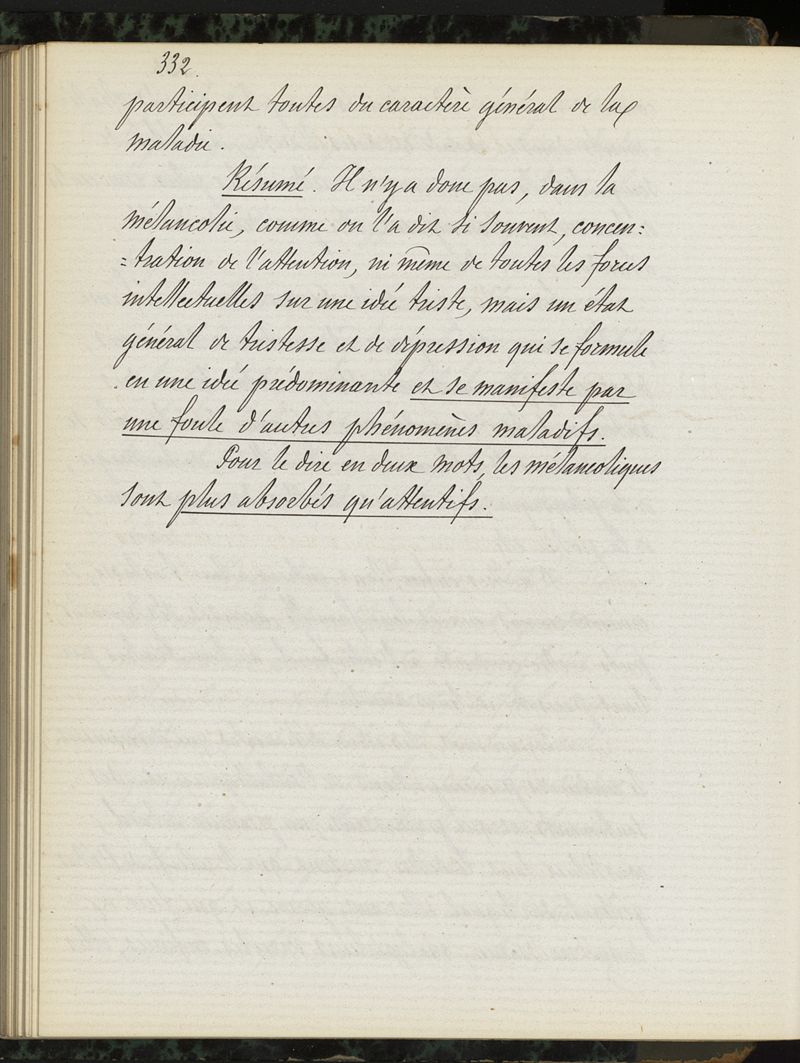 332.
participent toutes du caractère général de la
maladie.
Résumé. Il n'y a donc pas, dans la
mélancolie, comme on l'a dit si souvent, concen=
=tration de l'attention, ni même de toutes les forces
intellectuelles sur une idée triste, mais un état
général de tristesse et de dépression qui se formule
en une idée prédominante et se manifeste par
une foule d'autres phénomènes maladifs.
Pour le dire en deux mots, les mélancoliques
sont plus absorbés qu'attentifs.